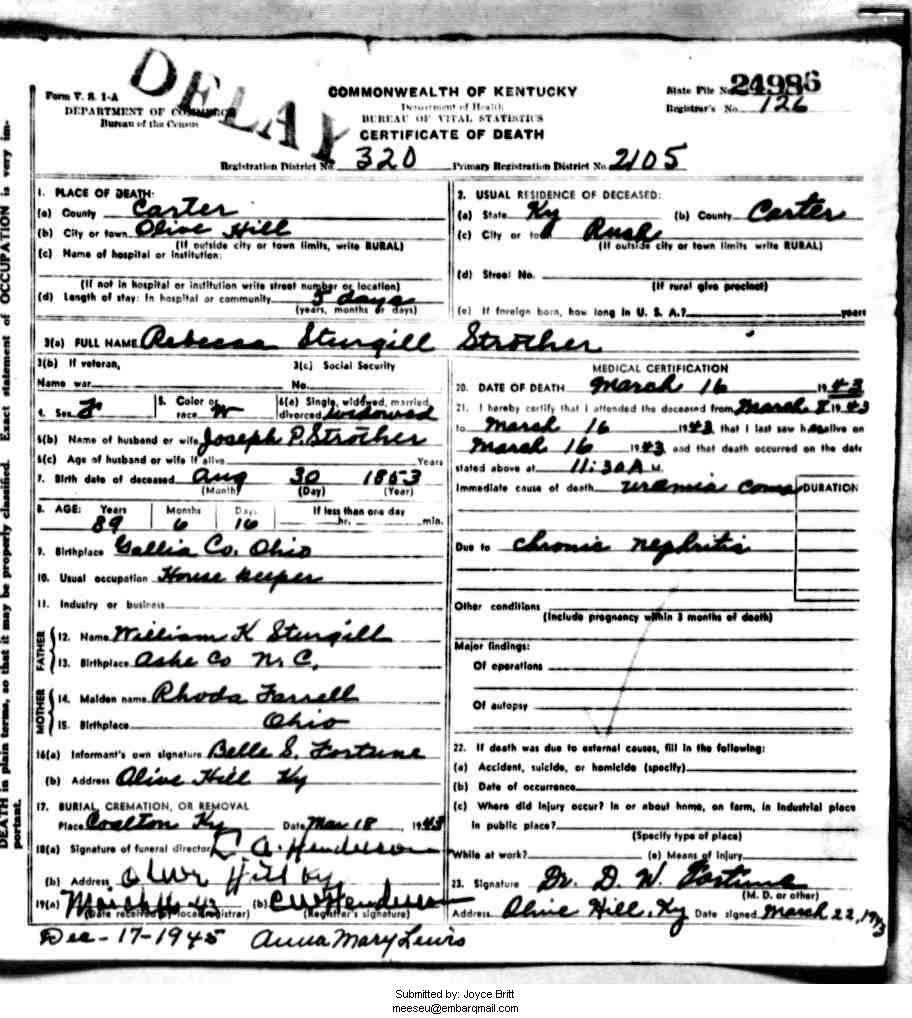 DELAY
Form V. S. 1-A
DEPARTMENT OF COMMERCE
Bureau of the Census
COMMONWEALTH OF KENTUCKY
Department of Health
BUREAU OF VITAL STATISTICS
CERTIFICATE OF DEATH
State File No. 24986
Registrar's No. 126
Registration District No. 320 Primary Registration District No. 2105
1. PLACE OF DEATH:
(a) County Carter
(b) City or town Olive Hill
(If outside city or town limits, write RURAL)
(c) Name of hospital or institution:
(If not in hospital or institution write street number or location)
(d) Length of stay: In hospital or community 5 days
(years, months or days)
2. USUAL RESIDENCE OF DECEASED:
(a) State Ky (b) County Carter
(c) City or town Rush
(If outside city or town limits write RURAL)
(d) Street No.
(If rural give precinct)
(e) If foreign born, how long in U. S. A.? years
3(a) FULL NAME Rebecca Sturgill Strother
3(b) If veteran,
Name war
3(c) Social Security
No.
4. Sex F
5. Color or race W
6(a) Single, widowed, married, divorced widowed
6(b) Name of husband or wife Joseph P. Strother
6(c) Age of husband or wife if alive Years
7. Birth date of deceased Aug 30 1853
(Month) (Day) (Year)
8. AGE: Years Months Days If less than one day
89 6 16 hr. min.
9. Birthplace Gallia Co. Ohio
10. Usual occupation House keeper
11. Industry or business
FATHER
12. Name William K Sturgill
13. Birthplace Ashe Co N. C.
MOTHER
14. Maiden name Rhoda Farrell
15. Birthplace Ohio
16(a) Informant's own signature Belle S. Fortune
(b) Address Olive Hill Ky
17. BURIAL, CREMATION, OR REMOVAL
Place Coalton Ky Date Mar 18, 1943
18(a) Signature of funeral director A Henderson
(b) Address Olive Hill Ky
19(a) March 43 (b) Henderson
(Date received by local registrar) (Registrar's signature)
MEDICAL CERTIFICATION
20. DATE OF DEATH March 16 1943
21. I hereby certify that I attended the deceased from March 1943
to March 16 1943 that I last saw h alive on
March 16 1943 and that death occurred on the date
stated above at 11:30 A M.
Immediate cause of death uremia coma DURATION
Due to chronic nephritis
Other conditions
(Include pregnancy within 3 months of death)
Major findings:
Of operations
Of autopsy
22. If death was due to external causes, fill in the following:
(a) Accident, suicide, or homicide (specify)
(b) Date of occurrence
(c) Where did injury occur? In or about home, on farm, in industrial place
in public place?
(Specify type of place)
While at work? (e) Means of injury
23. Signature Dr. D. W. Fortune
(M. D. or other)
Address Olive Hill, Ky Date signed March 22, 1943
Dec-17-1945 Anna Mary Lewis
DEATH in plain terms, so that it may be properly classified. Exact statement of OCCUPATION is very im-
portant.
Submitted by: Joyce Britt
meeseu@embarqmail.com